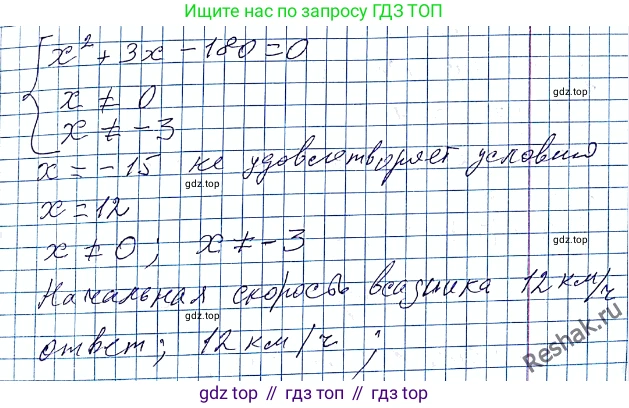 Ищите нас по запросу ГДЗ ТОП
x² + 3x - 180 = 0
gdz.top
x ≠ 0
x ≠ -3
x = -15 не удовлетворяет условию
gdz.top
x = 12
x ≠ 0; x ≠ -3
gdz.top
Начальная скорость всадника 12 км/ч
gdz.top
ответ; 12 км/ч;
Reshak.ru
gdz.top // гдз.топ // gdz.top // гдз.топ